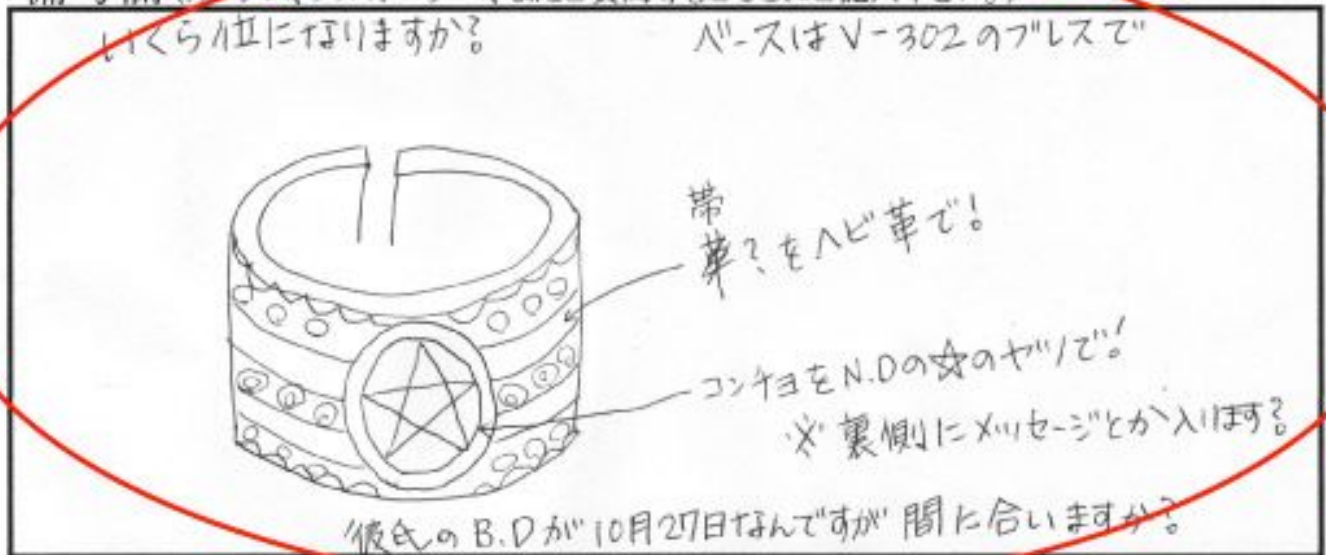 いくら位になりますか?
ベースはV-302のブレスで
帯
革?をヘビ革で!
コンチョをN.Dの☆のヤツで!
※裏側にメッセージとか入ります?
彼氏のB.Dが10月27日なんですが間に合いますか?